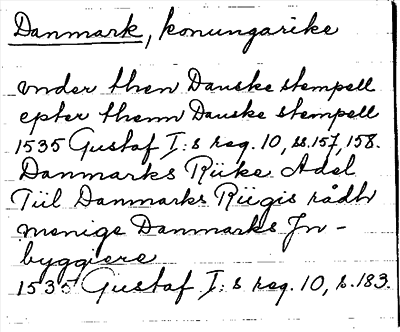 Danmark, konungarike
vnder then Danske stempell
epter thenn Danske stempell
1535 Gustaf I:s reg. 10, ss. 157, 158.
Danmarks Riike Adel
Tiil Danmarks Riigis rådh
menige Danmarks Jn-
byggiere
1535 Gustaf I:s reg. 10, s. 183.